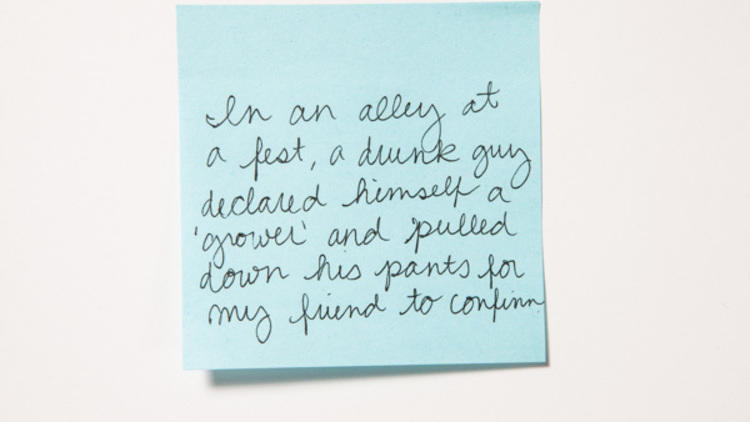 In an alley at
a fest, a drunk guy
declared himself a
'grower' and pulled
down his pants for
my friend to confirm